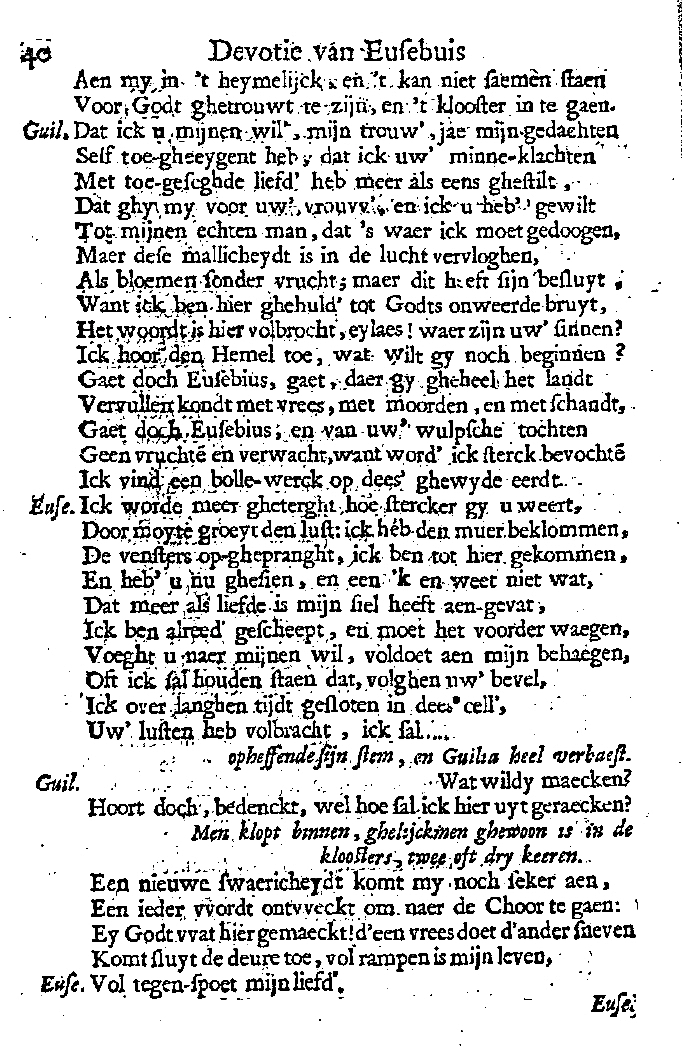 40 Devotie van Eusebuis
Aen my in 't heymelijck, en 't kan niet saemen staen
Voor Godt ghetrouwt te zijn, en 't klooster in te gaen.
Guil. Dat ick u mijnen wil', mijn trouw', jae mijn gedachten
Self toe-gheeygent heb, dat ick uw' minne-klachten
Met toe-geseghde liefd' heb meer als eens ghestilt,
Dat ghy my voor uw' vrouvv', en ick u heb' gewilt
Tot mijnen echten man, dat 's waer ick moet gedoogen,
Maer dese mallicheydt is in de lucht vervloghen,
Als bloemen sonder vrucht; maer dit heeft sijn besluyt;
Want ick ben hier ghehuld' tot Godts onweerde bruyt,
Het woordt is hier volbrocht, eylaes! waer zijn uw' sinnen?
Ick hoor den Hemel toe, wat wilt gy noch beginnen?
Gaet doch Eusebius, gaet, daer gy gheheel het landt
Vervullen kondt met vrees, met moorden, en met schandt,
Gaet doch Eusebius; en van uw' wulpsche tochten
Geen vruchtē en verwacht, want word' ick sterck bevochtē
Ick vind een bolle-werck op dees' ghewyde eerdt.
Euse. Ick worde meer gheterght hoe stercker gy u weert,
Door moyte groeyt den lust: ick heb den muer beklommen,
De vensters op-ghepranght, ick ben tot hier gekommen,
En heb' u nu ghesien, en een 'k en weet niet wat,
Dat meer als liefde is mijn siel heeft aen-gevat,
Ick ben alreed' gescheept, en moet het voorder waegen,
Voeght u naer mijnen wil, voldoet aen mijn behaegen,
Oft ick sal houden staen dat, volghen uw' bevel,
Ick over langhen tijdt gesloten in dees' cell',
Uw' lusten heb volbracht, ick sal....
opheffende sijn stem, en Guilia heel verbaest.
Guil. Wat wildy maecken?
Hoort doch, bedenckt, wel hoe sal ick hier uyt geraecken?
Men klopt binnen, ghelijckmen ghewoon is in de
kloosters, twee oft dry keeren.
Een nieuwe swaericheydt komt my noch seker aen,
Een ieder vvordt ontvveckt om naer de Choor te gaen:
Ey Godt vvat hier gemaeckt! d'een vrees doet d'ander sneven
Komt sluyt de deure toe, vol rampen is mijn leven,
Euse. Vol tegen-spoet mijn liefd'.
Euse.